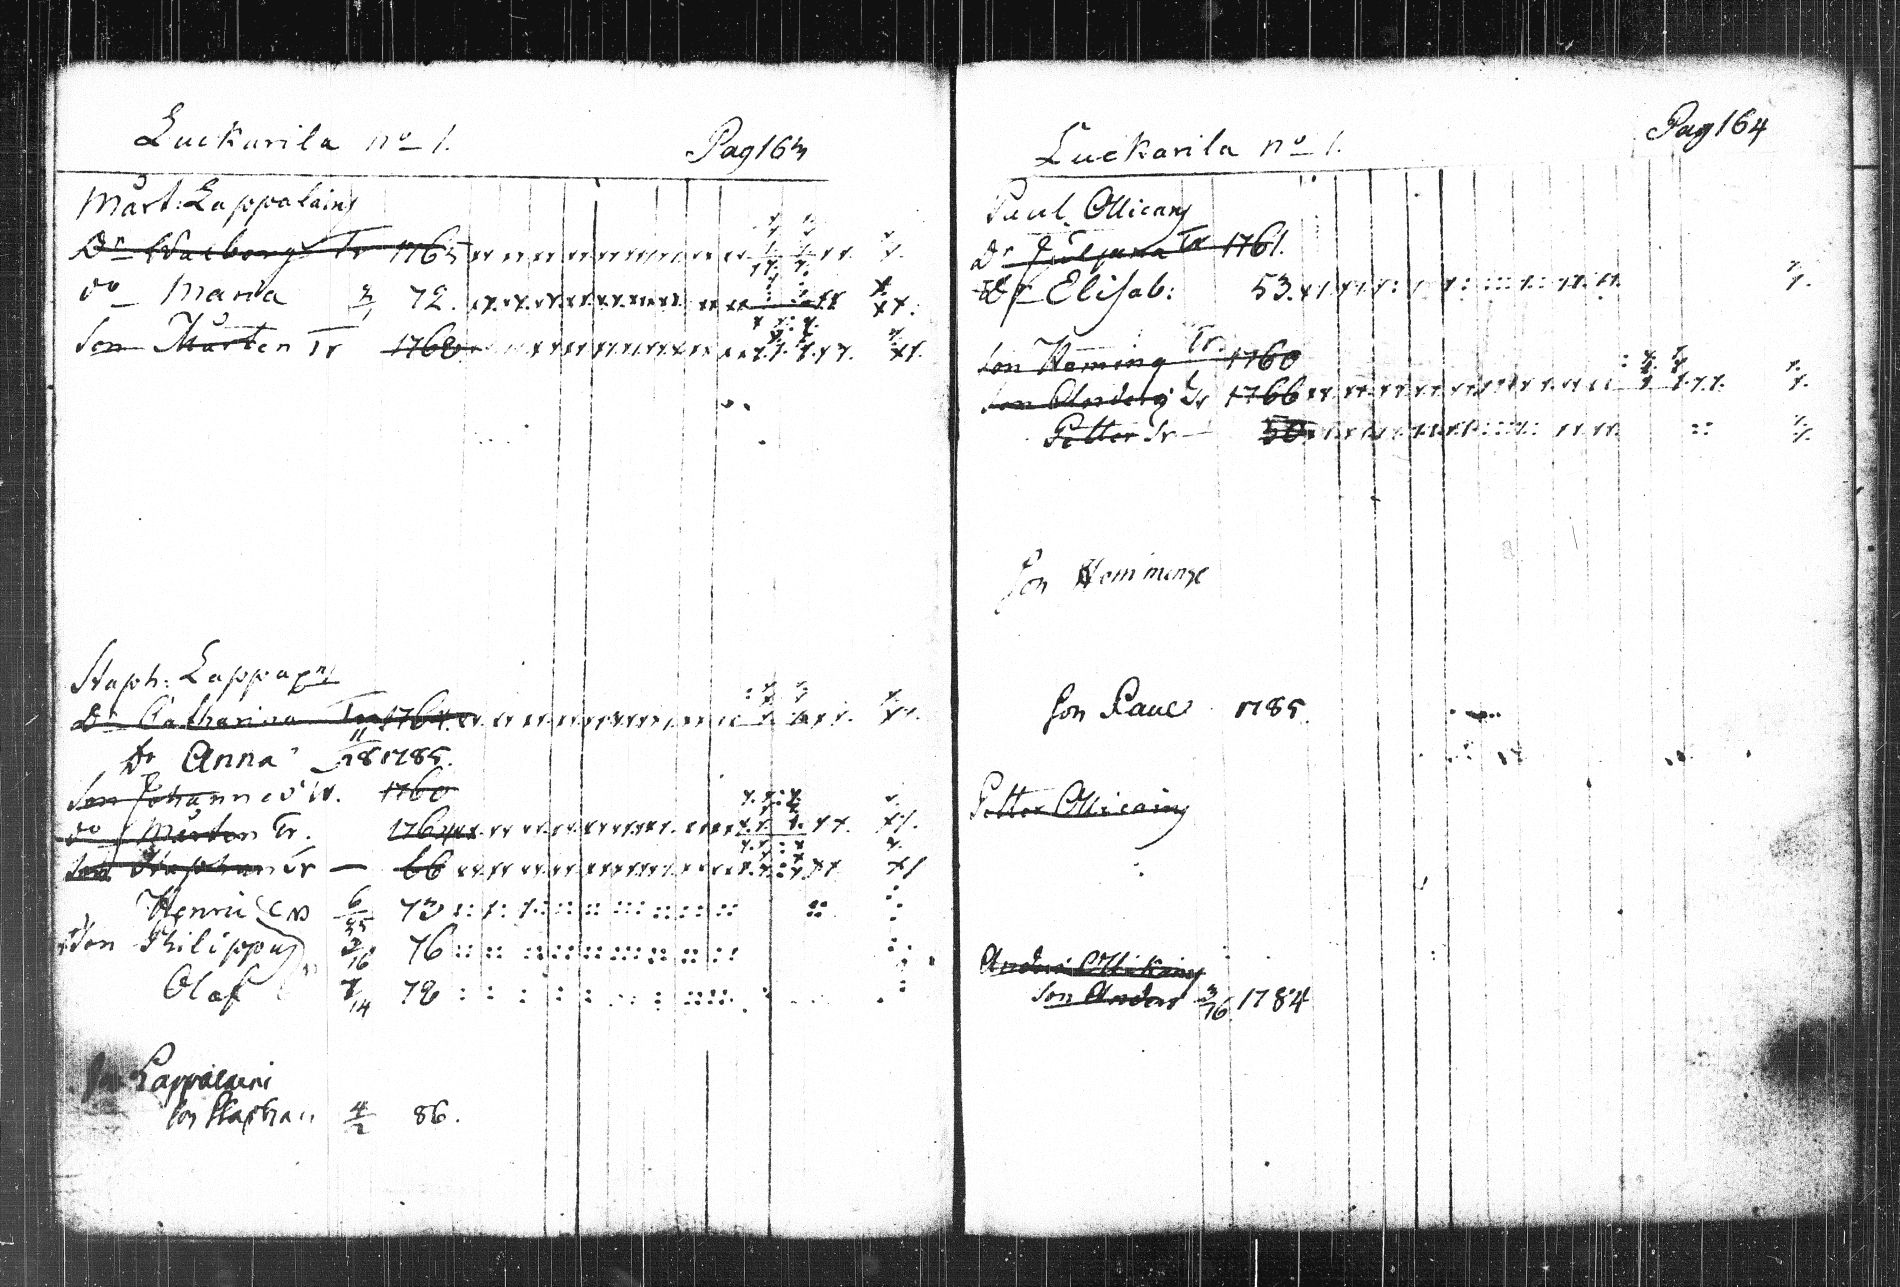 Luckarila no 1.
Pag 163
Mårt: Lappalains
Dr Walborg Tr 1765
do Maria 72.
Son Mårten Tr 1768
Staph: Lappa
Dr Catharina Tr 1764
Dr Anna 11/18 1785.
Son Johannes Tr. 1760
do Mårten Tr. 1764
Son Staphan Tr — 66
Henric 6/25 73
Son Philippus 3/16 76
Olaf 7/14 78
Lappalaini
Son Staphan 4/2 86.
Luckarila no 1.
Pag 164
Paul Ollicains
Dr Juljana Tr 1761.
Dr Elisab: 53.
Son Heming Tr. 1760
Son Anders Tr 1766
Petter Tr — 50
Son Hemminge
Son Pauel 1785.
Petter Ollicains
Anders Ollikains
Son Anders 3/16 1784